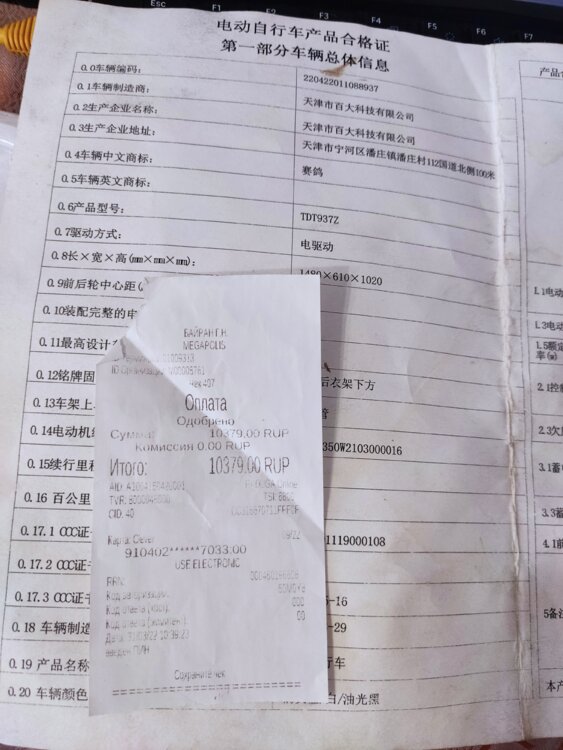 Esc
F1
F4
F5
F6
F7
电动自行车产品合格证
第一部分车辆总体信息
0.0车辆编码：
220422011088937
0.1车辆制造商：
天津市百大科技有限公司
0.2生产企业名称：
天津市百大科技有限公司
0.3生产企业地址：
天津市宁河区潘庄镇潘庄村112国道北侧100米
0.4车辆中文商标：
赛鸽
0.5车辆英文商标：
0.6产品型号：
TDT937Z
0.7驱动方式：
电驱动
0.8长×宽×高(mm×mm×mm)：
1480×610×1020
0.9前后轮中心距(
0.10装配完整的电
0.11最高设计
0.12铭牌固
后衣架下方
0.13车架上
管
0.14电动机编
350W2103000016
0.15续行里程
0.16 百公里
0.17.1 CCC证
1119000108
0.17.2 CCC证
0.17.3 CCC证书
-16
0.18 车辆制造
-29
0.19 产品名称
行车
0.20 车辆颜色
白/油光黑
БАЙРАН Г.Н.
MEGAPOLIS
Чек 407
Оплата
Одобрено
Сумма:
10379.00 RUP
Комиссия 0.00 RUP
Итого:
10379.00 RUP
CID: 40
Карта: Clever
09/22
910402******7033.00
USE ELECTRONIC
RRN:
Код авторизации:
000
Код ответа (хост):
00
введен ПИН
Сохраните чек
产品合
1.1电动
1.3电动
1.5额定
率(w)
2.1控制
2.3欠
3.1蓄
3.3蓄
4.1前
5备注
本产